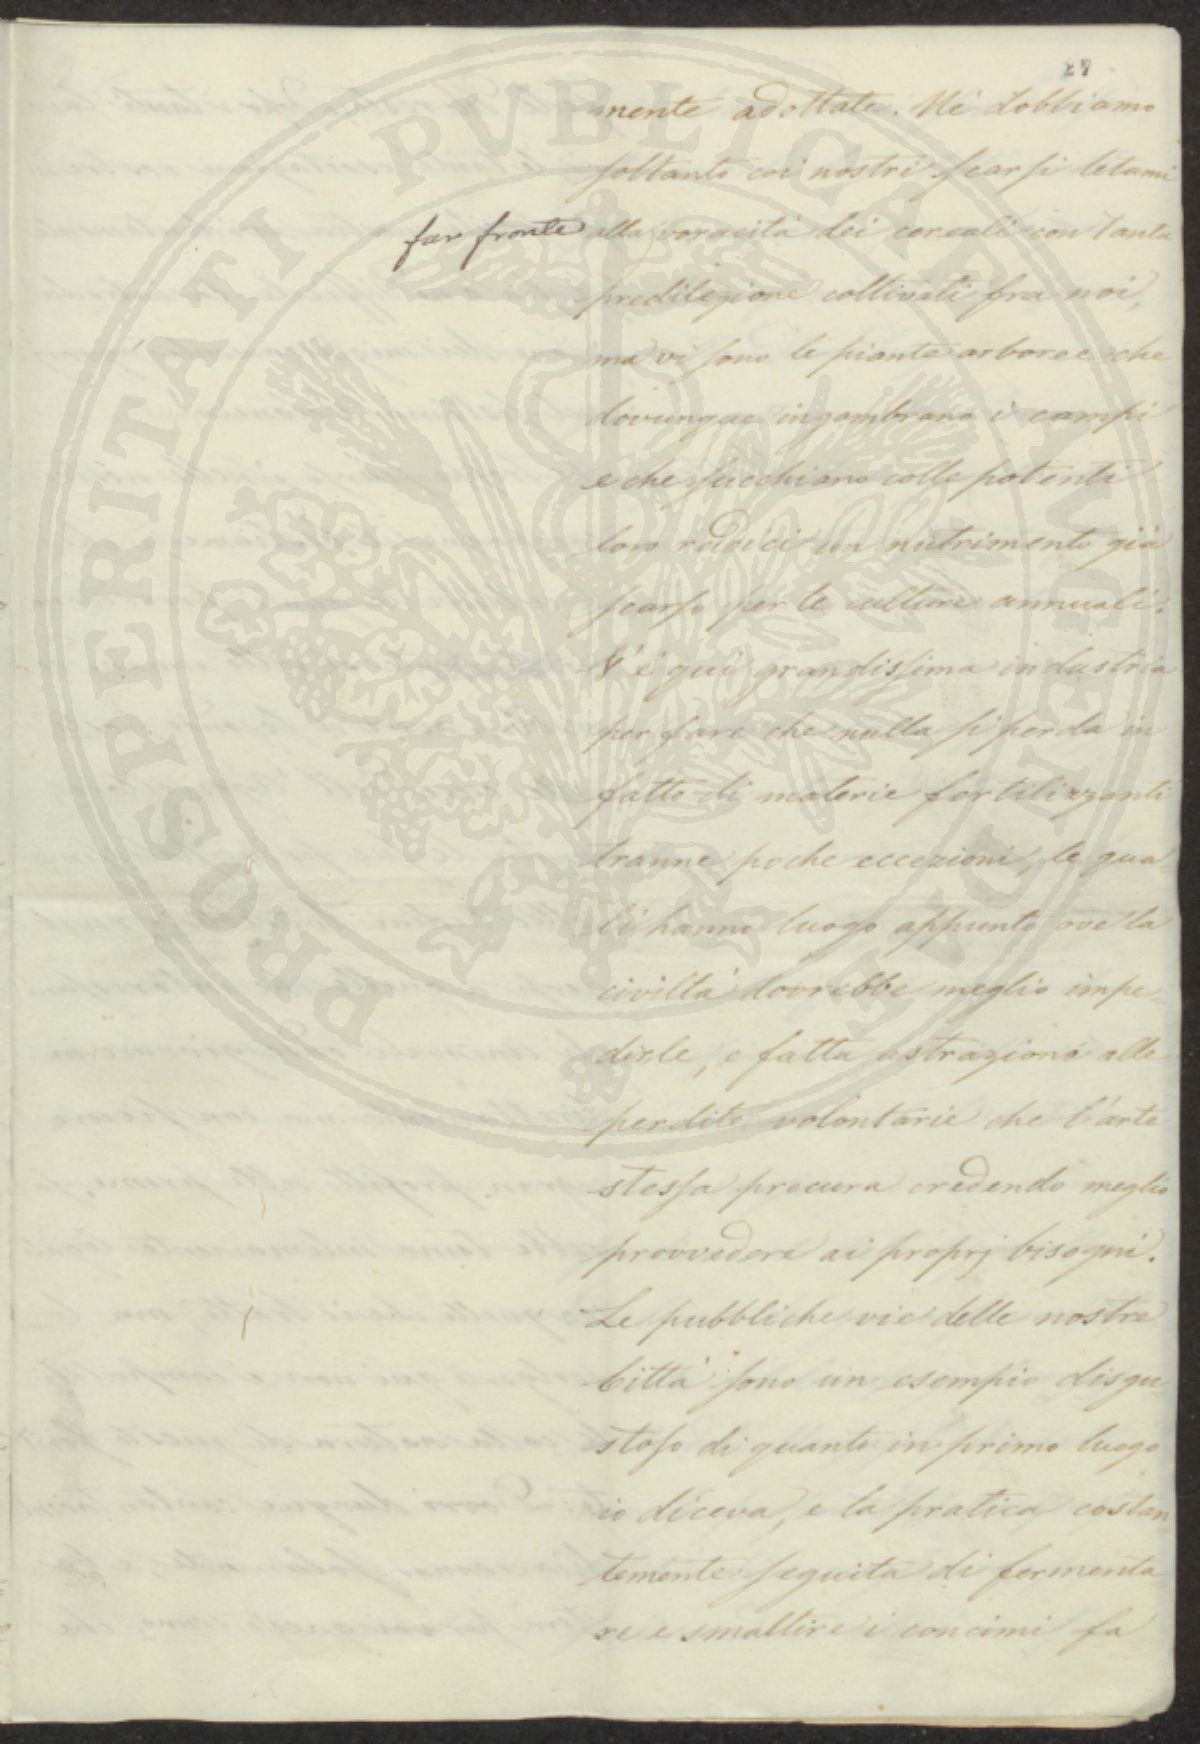 27
mente adottate. Né dobbiamo
soltanto coi nostri scarsi letami
far fronte alla voracità dei cereali con tanta
predilezione coltivati fra noi,
ma vi sono le piante arboree che
dovunque ingombrano i campi
e che succhiano colle potenti
loro radici un nutrimento già
scarso per le culture annuali.
V'é qui grandissima industria
per fare che nulla si perda in
fatto di materie fertilizzanti
tranne poche eccezioni, le qua
li hanno luogo appunto ove la
civiltà dovrebbe meglio impe=
dirle, e fatta astrazione alle
perdite volontarie che l'arte
stessa procura credendo meglio
provvedere ai proprj bisogni.
Le pubbliche vie delle nostre
Città sono un esempio disgu=
stoso di quanto in primo luogo
io diceva, e la pratica costan
temente seguita di fermenta
re e smaltire i concimi fa
PROSPERITATI PVBLICAE AVGENDAE